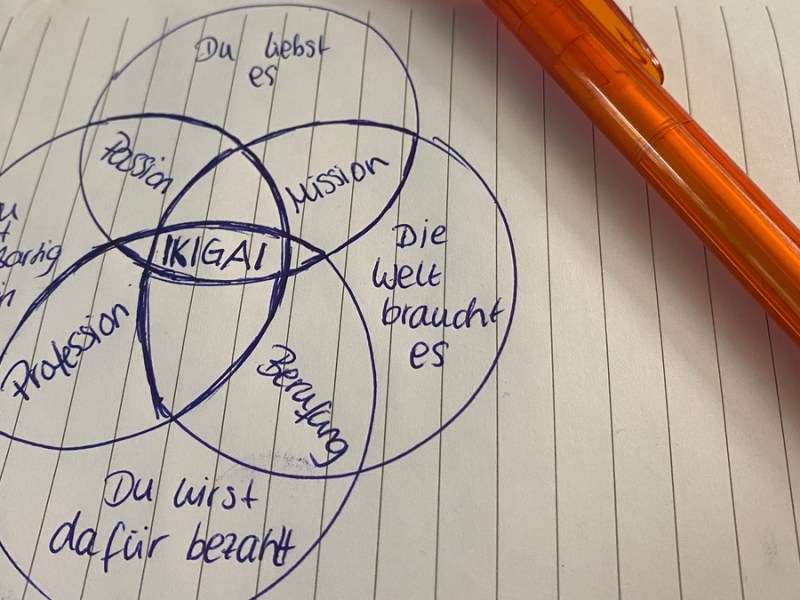 Du liebst
es
Passion
Mission
IKIGAI
Die
Welt
braucht
es
Profession
Berufung
Du wirst
dafür bezahlt